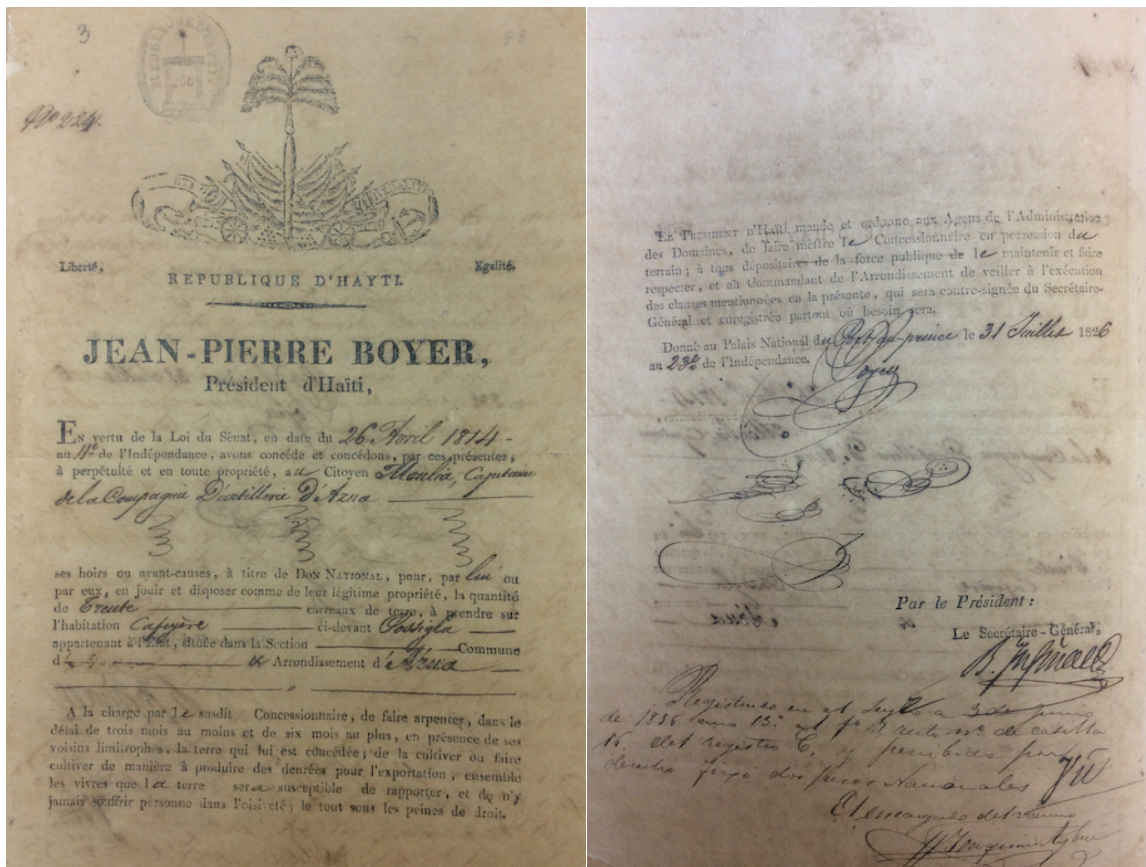 3
98
REPUBLIQUE D'HAYTI
No 224.
Liberté,
Egalité.
REPUBLIQUE D'HAYTI.
JEAN-PIERRE BOYER,
Président d'Haïti,
EN vertu de la Loi du Sénat, en date du 26 Avril 1814 -
au 11e de l'Indépendance, avons concédé et concédons, par ces présentes,
à perpétuité et en toute propriété, au Citoyen Capitaine
de la Compagnie D'artillerie d'Azua
ses hoirs ou ayant-causes, à titre de DON NATIONAL, pour, par lui ou
par eux, en jouir et disposer comme de leur légitime propriété, la quantité
de Trente carreaux de terre, à prendre sur
l'habitation ci-devant
appartenant à l'Etat, située dans la Section Commune
d' Arrondissement d'Azua
A la charge par le susdit Concessionnaire, de faire arpenter, dans le
délai de trois mois au moins et de six mois au plus, en présence de ses
voisins limitrophes, la terre qui lui est concédée; de la cultiver ou faire
cultiver de manière à produire des denrées pour l'exportation, ensemble
les vivres que la terre sera susceptible de rapporter, et de n'y
jamais souffrir personne dans l'oisiveté; le tout sous les peines de droit.
LE PRÉSIDENT D'Haïti mande et ordonne aux Agens de l'Administration
des Domaines, de faire mettre le Concessionnaire en possession du
terrain; à tous dépositaires de la force publique de le maintenir et faire
respecter, et au Commandant de l'Arrondissement de veiller à l'exécution
des clauses mentionnées en la présente, qui sera contre-signée du Secrétaire-
Général et enregistrée partout où besoin sera.
Donné au Palais National du Port-au-prince le 31 Juillet 1826
au 23e de l'Indépendance.
Boyer
Par le Président:
Le Secrétaire-Général,
B. Inginac
de 1836 ano 13º al fº 3, nº de casilla
16 del registro C, y percibidos por
derecho fixo dos pesos Nacionales
El encargado del ramo